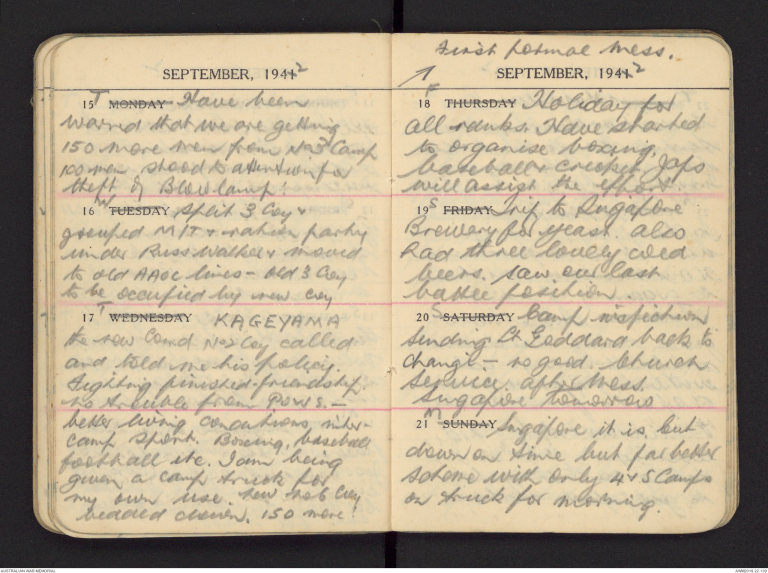 SEPTEMBER, 1941 2
15 T MONDAY Have been
warned that we are getting
150 more men from No 3 Camp
100 men stood to attention for
theft of Blowlamp!
16 W TUESDAY Split 3 Coy +
grouped M/T + ration party
under Russ Walker + moved
to old AAOC lines - old 3 Coy
to be occupied by new Coy
17 T WEDNESDAY KAGEYAMA
the new Comd No 2 Coy called
and told me his policy.
Fighting finished - friendship.
no trouble from POWs. -
better living conditions, inter-
camp sport. Boxing, baseball
football etc. I am being
given a camp truck for
my own use. new No 6 Coy
bedded down. 150 more!
First formal Mess.
SEPTEMBER, 1941 2
18 F THURSDAY Holiday for
all ranks. Have started
to organise boxing,
baseball + cricket, Japs
will assist the effort.
19 S FRIDAY Trip to Singapore
Brewery for yeast. also
had three lovely cold
beers. saw our last
battle position
20 S SATURDAY Camp inspection
sending Lt Goddard back to
Changi - no good. Church
service after Mess.
Singapore tomorrow
21 M SUNDAY Singapore it is but
down on time but far better
scheme with only 4 + 5 Camps
on truck for morning.
AUSTRALIAN WAR MEMORIAL